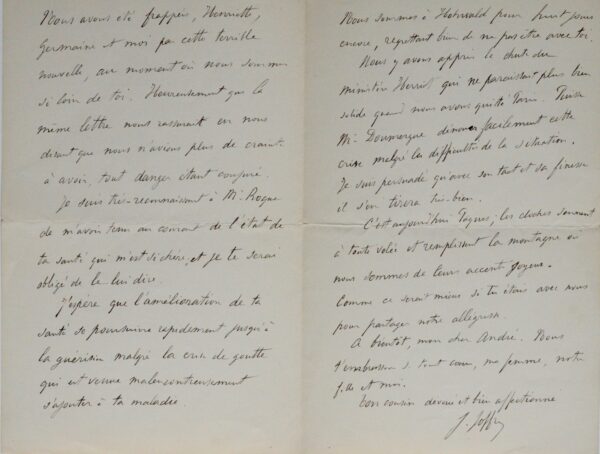 Nous avons été frappés, Henriette,
Germaine et moi par cette terrible
nouvelle, au moment où nous sommes
si loin de toi. Heureusement que la
même lettre nous rassurait en nous
disant que nous n'avions plus de crainte
à avoir, tout danger étant conjuré.
Je suis très reconnaissant à Mr Rogue
de m'avoir tenu au courant de l'état de
ta santé qui m'est si chère, et je te serai
obligé de le lui dire.
J'espère que l'amélioration de ta
santé se poursuivra rapidement jusqu'à
la guérison malgré la crise de goutte
qui est venue malencontreusement
s'ajouter à ta maladie.
Nous sommes à Hohwald pour huit jours
encore, regrettant bien de ne pas être avec toi.
Nous y avons appris la chute du
ministère Herriot qui ne paraissait plus bien
solide quand nous avons quitté Paris.
Mr Doumergue dénouera facilement cette
crise malgré la difficulté de la situation.
Je suis persuadé qu'avec son tact et sa finesse
il s'en tirera très-bien.
C'est aujourd'hui Pâques ; les cloches sonnent
à toute volée et remplissent la montagne où
nous sommes de leurs accents joyeux.
Comme ce serait mieux si tu étais avec nous
pour partager notre allégresse.
A bientôt, mon cher André. Nous
t'embrassons de tout cœur, ma femme, notre
fille et moi.
Ton cousin dévoué et bien affectionné
J. Joffre